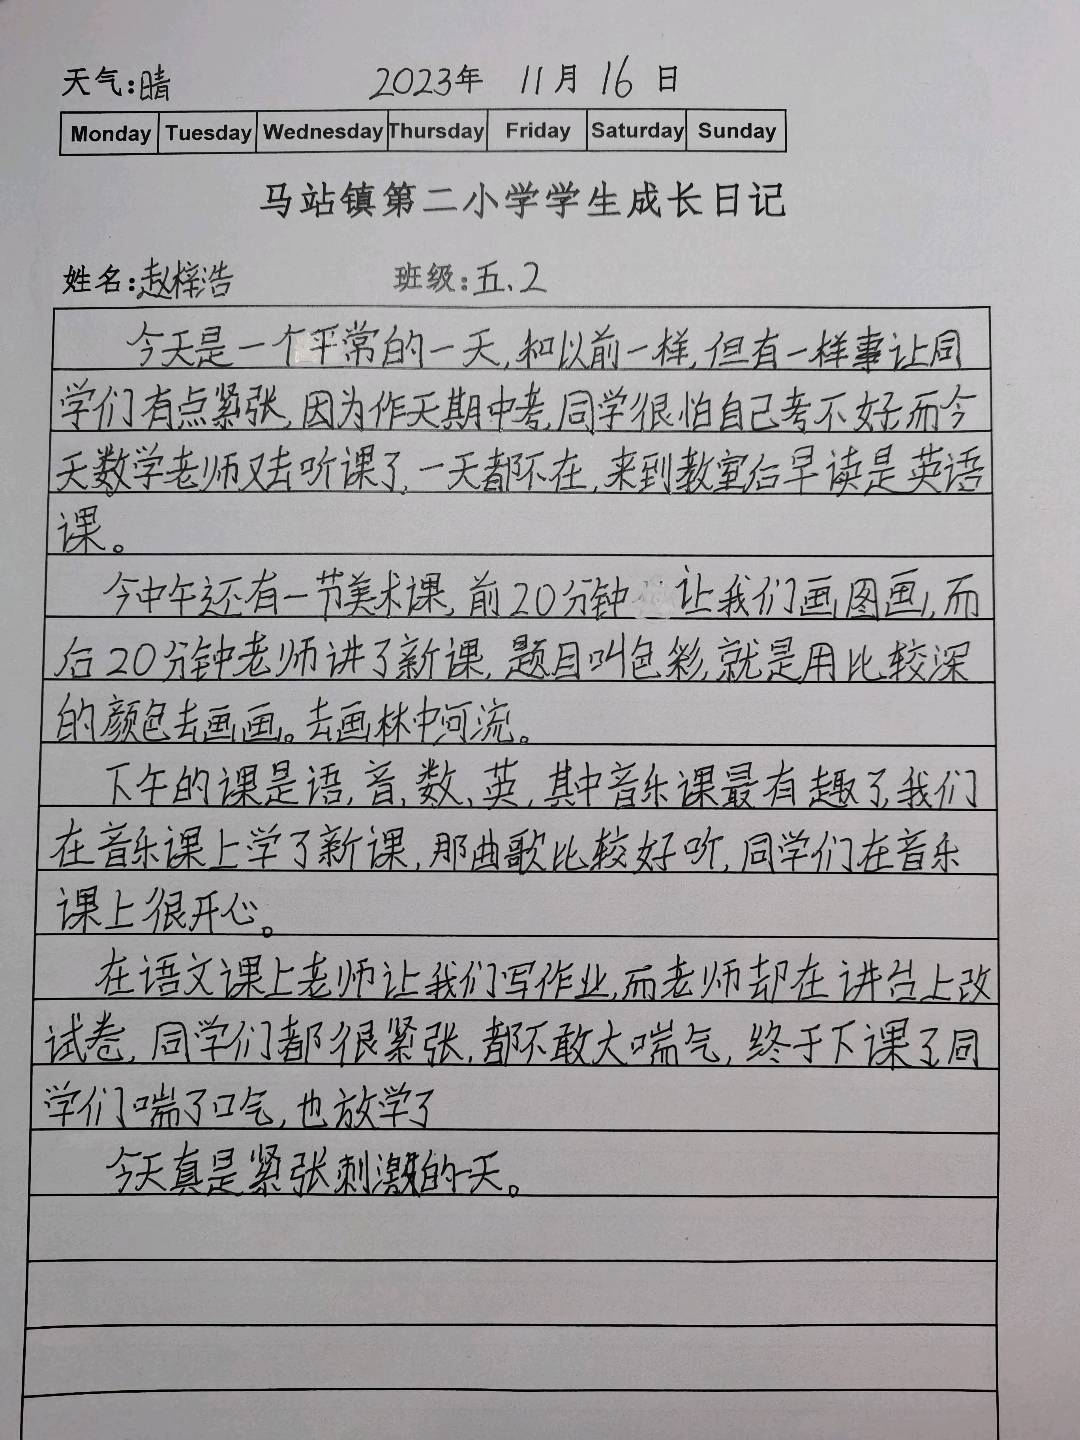 天气:晴 2023年 11月 16日
Monday Tuesday Wednesday Thursday Friday Saturday Sunday
马站镇第二小学学生成长日记
姓名:赵梓浩 班级:五.2
今天是一个平常的一天,和以前一样,但有一样事让同
学们有点紧张,因为作天期中考,同学很怕自己考不好,而今
天数学老师又去听课了,一天都不在,来到教室后早读是英语
课。
今中午还有一节美术课,前20分钟让我们画图画,而
后20分钟老师讲了新课,题目叫色彩,就是用比较深
的颜色去画画。去画林中河流。
下午的课是语,音,数,英,其中音乐课最有趣了,我们
在音乐课上学了新课,那曲歌比较好听,同学们在音乐
课上很开心。
在语文课上老师让我们写作业,而老师却在讲台上改
试卷,同学们都很紧张,都不敢大喘气,终于下课了,同
学们喘了口气,也放学了
今天真是紧张刺激的一天。